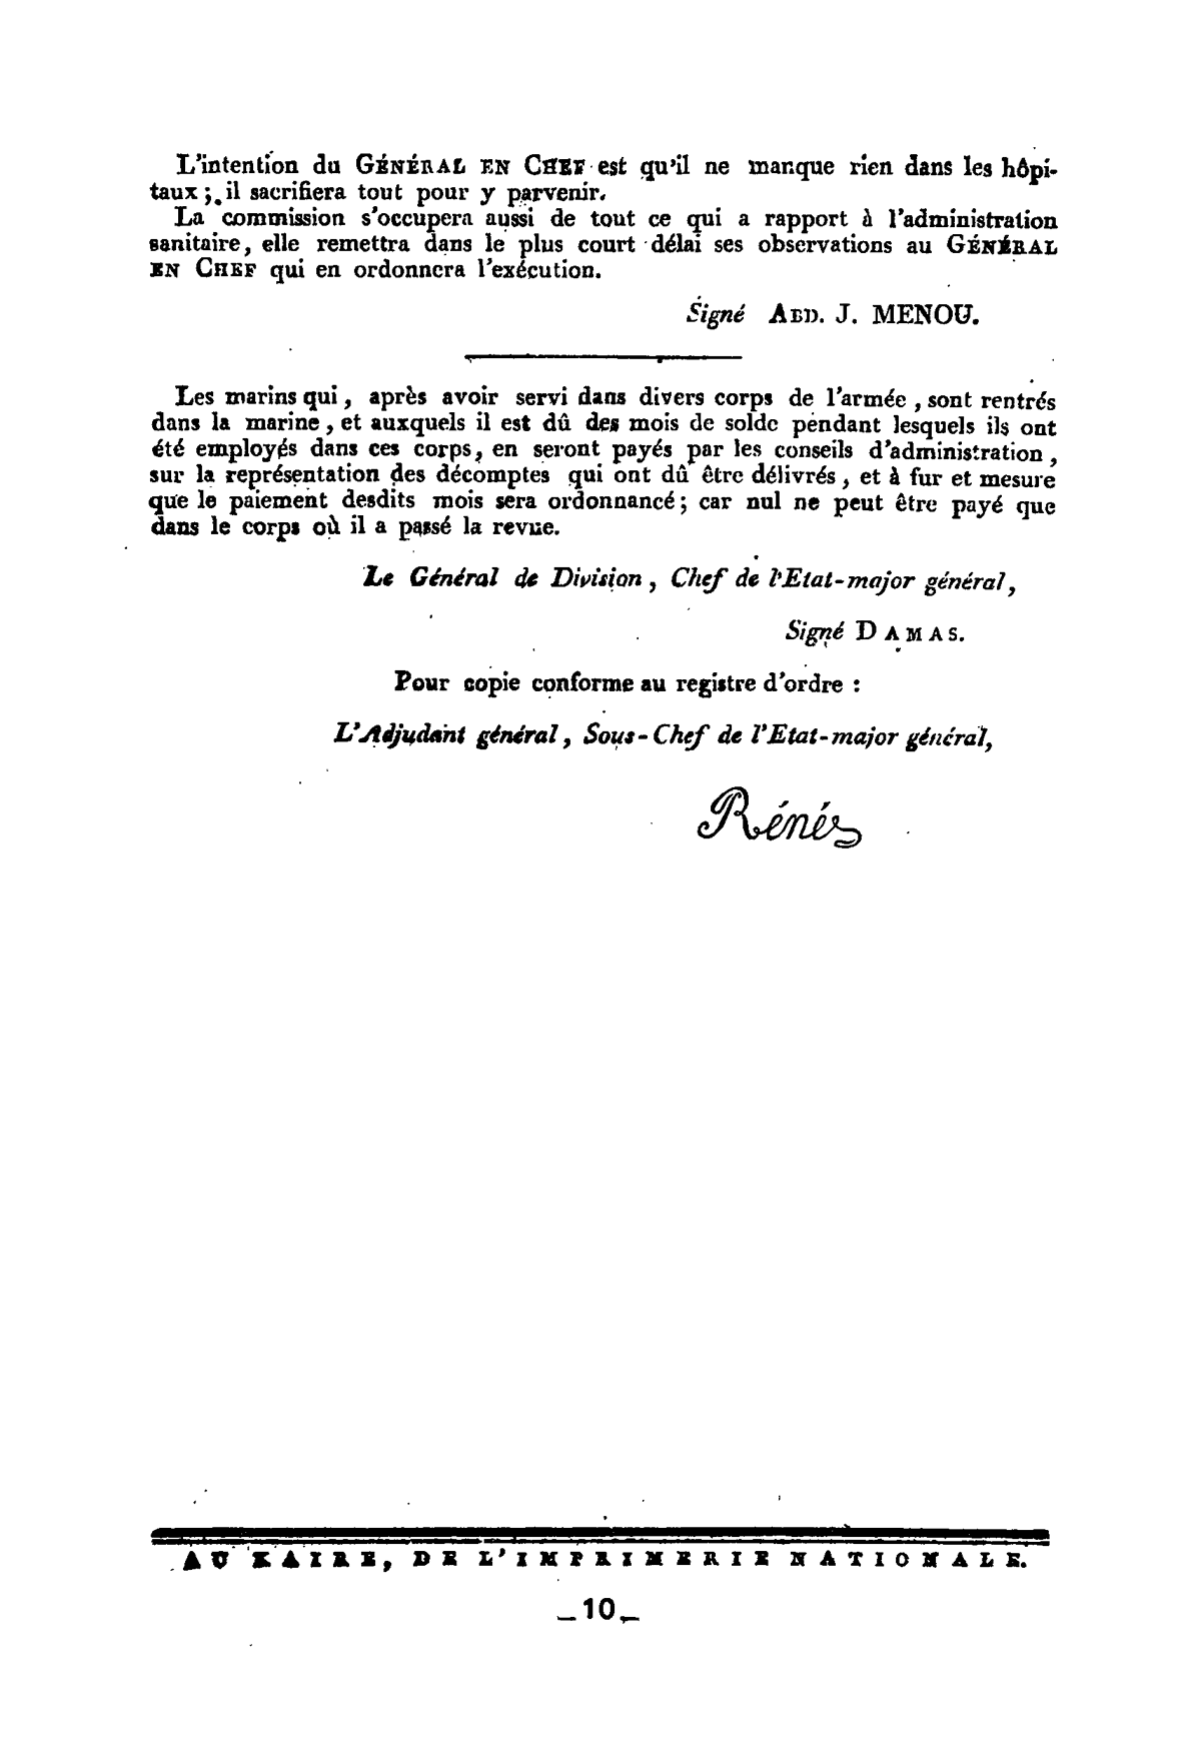 L'intention du GÉNÉRAL EN CHEF est qu'il ne manque rien dans les hôpi-
taux ; il sacrifiera tout pour y parvenir.
La commission s'occupera aussi de tout ce qui a rapport à l'administration
sanitaire, elle remettra dans le plus court délai ses observations au GÉNÉRAL
EN CHEF qui en ordonnera l'exécution.
Signé ABD. J. MENOU.
Les marins qui, après avoir servi dans divers corps de l'armée, sont rentrés
dans la marine, et auxquels il est dû des mois de solde pendant lesquels ils ont
été employés dans ces corps, en seront payés par les conseils d'administration,
sur la représentation des décomptes qui ont dû être délivrés, et à fur et mesure
que le paiement desdits mois sera ordonnancé ; car nul ne peut être payé que
dans le corps où il a passé la revue.
Le Général de Division, Chef de l'Etat-major général,
Signé DAMAS.
Pour copie conforme au registre d'ordre :
L'Adjudant général, Sous-Chef de l'Etat-major général,
Rénés
AU KAIRE, DE L'IMPRIMERIE NATIONALE.
_10_